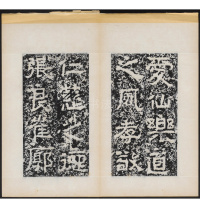 愛仙樂道
之風孝敬
仁慈之
張良